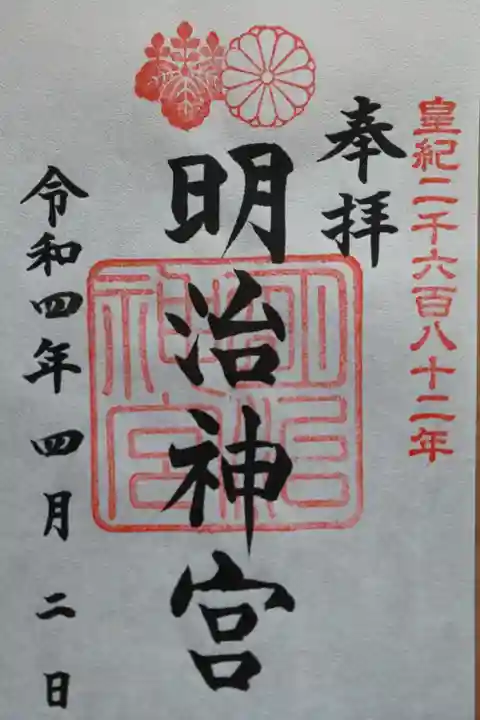 皇紀二千六百八十二年
奉拝
明治神宮
明治神宮
令和四年 四月 二日